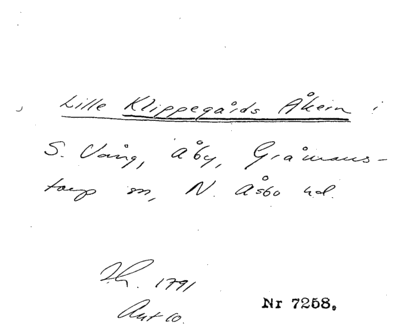 Lille Klippegårds Åkern i
S. Vång, Åby, Gråmans-
torp sn, N. Åsbo hd.
1791
Akt 10.
Nr 7258.